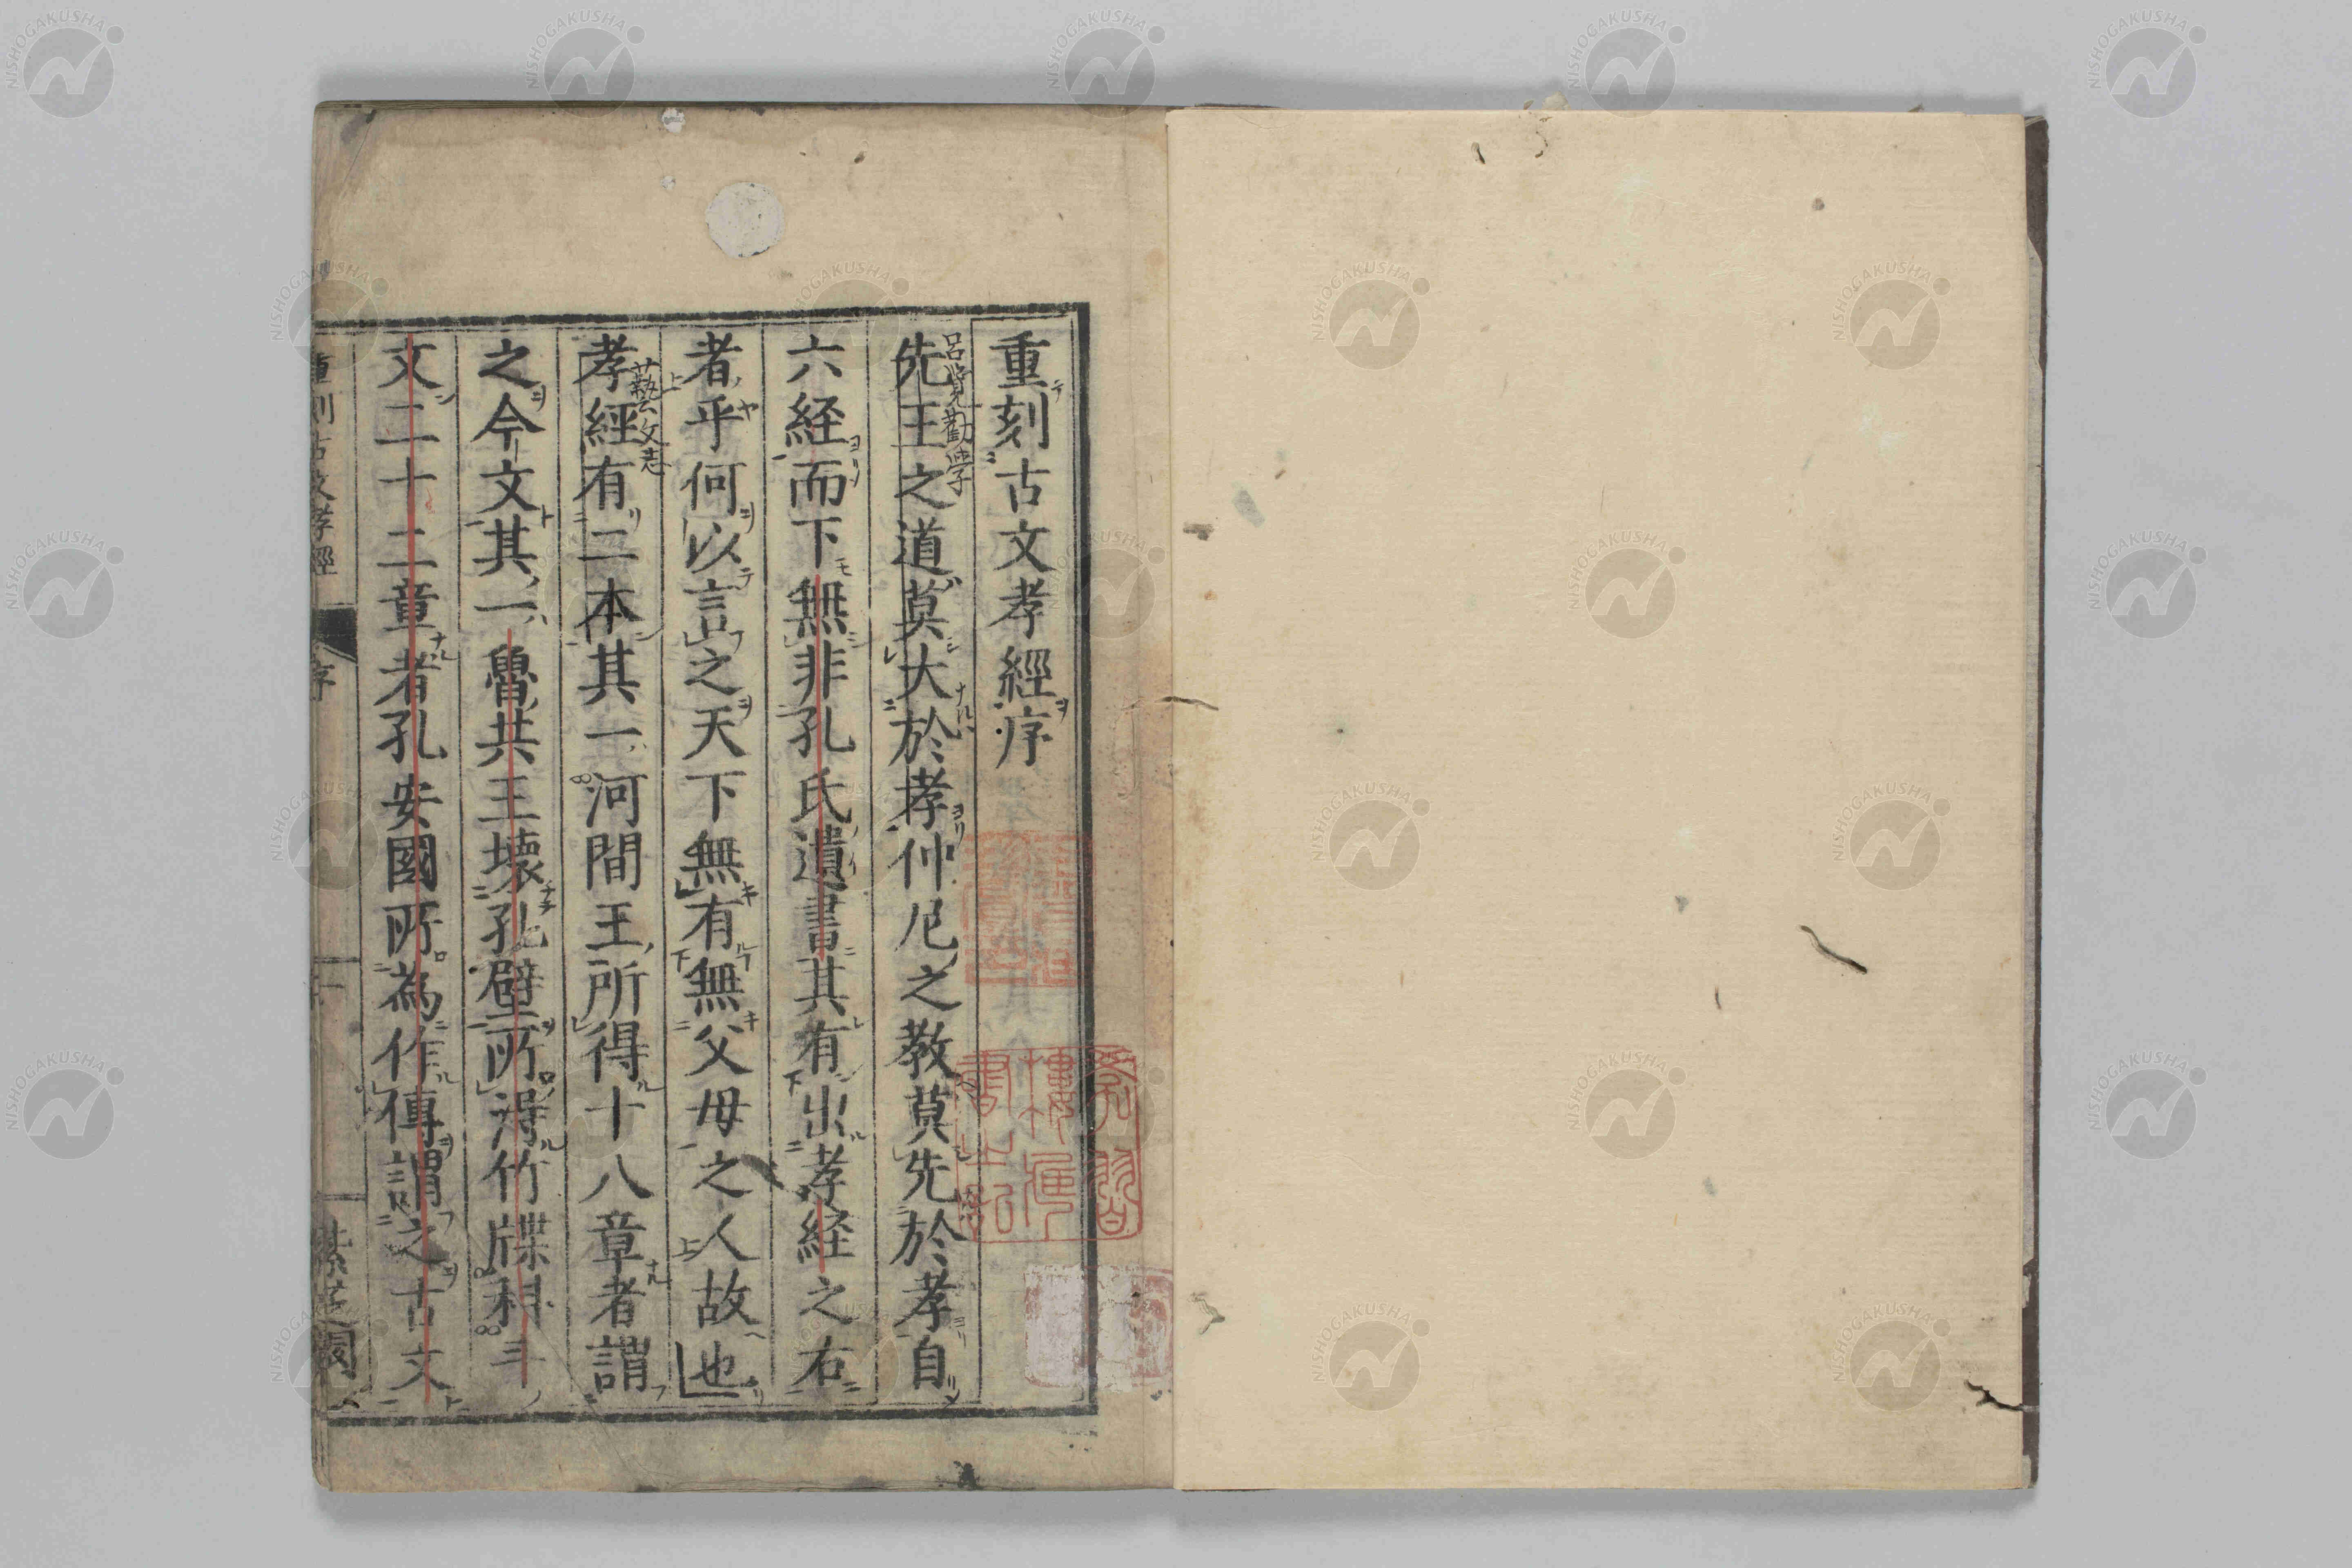 重刻古文孝經序
呂覽勸學
先王之道莫大於孝仲尼之教莫先於孝自
六経而下無非孔氏遺書其有出孝経之右
者乎何以言之天下無有無父母之人故也
藝文志
孝經有二本其一河間王所得十八章者謂
之今文其一魯共王壞孔壁所得竹牒科斗
文二十二章者孔安國所為作傳謂之古文
重刻古文孝經
序
紫芝園
NISHOGAKUSHA